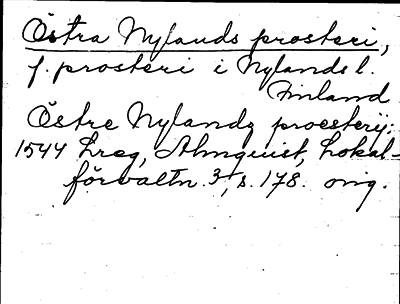 Östra Nylands prosteri,
f. prosteri i Nylands l.
Finland
Östre Nylandz proesterij:
1544 Lreg, Almquist, Lokal-
förvaltn. 3, s. 178. orig.